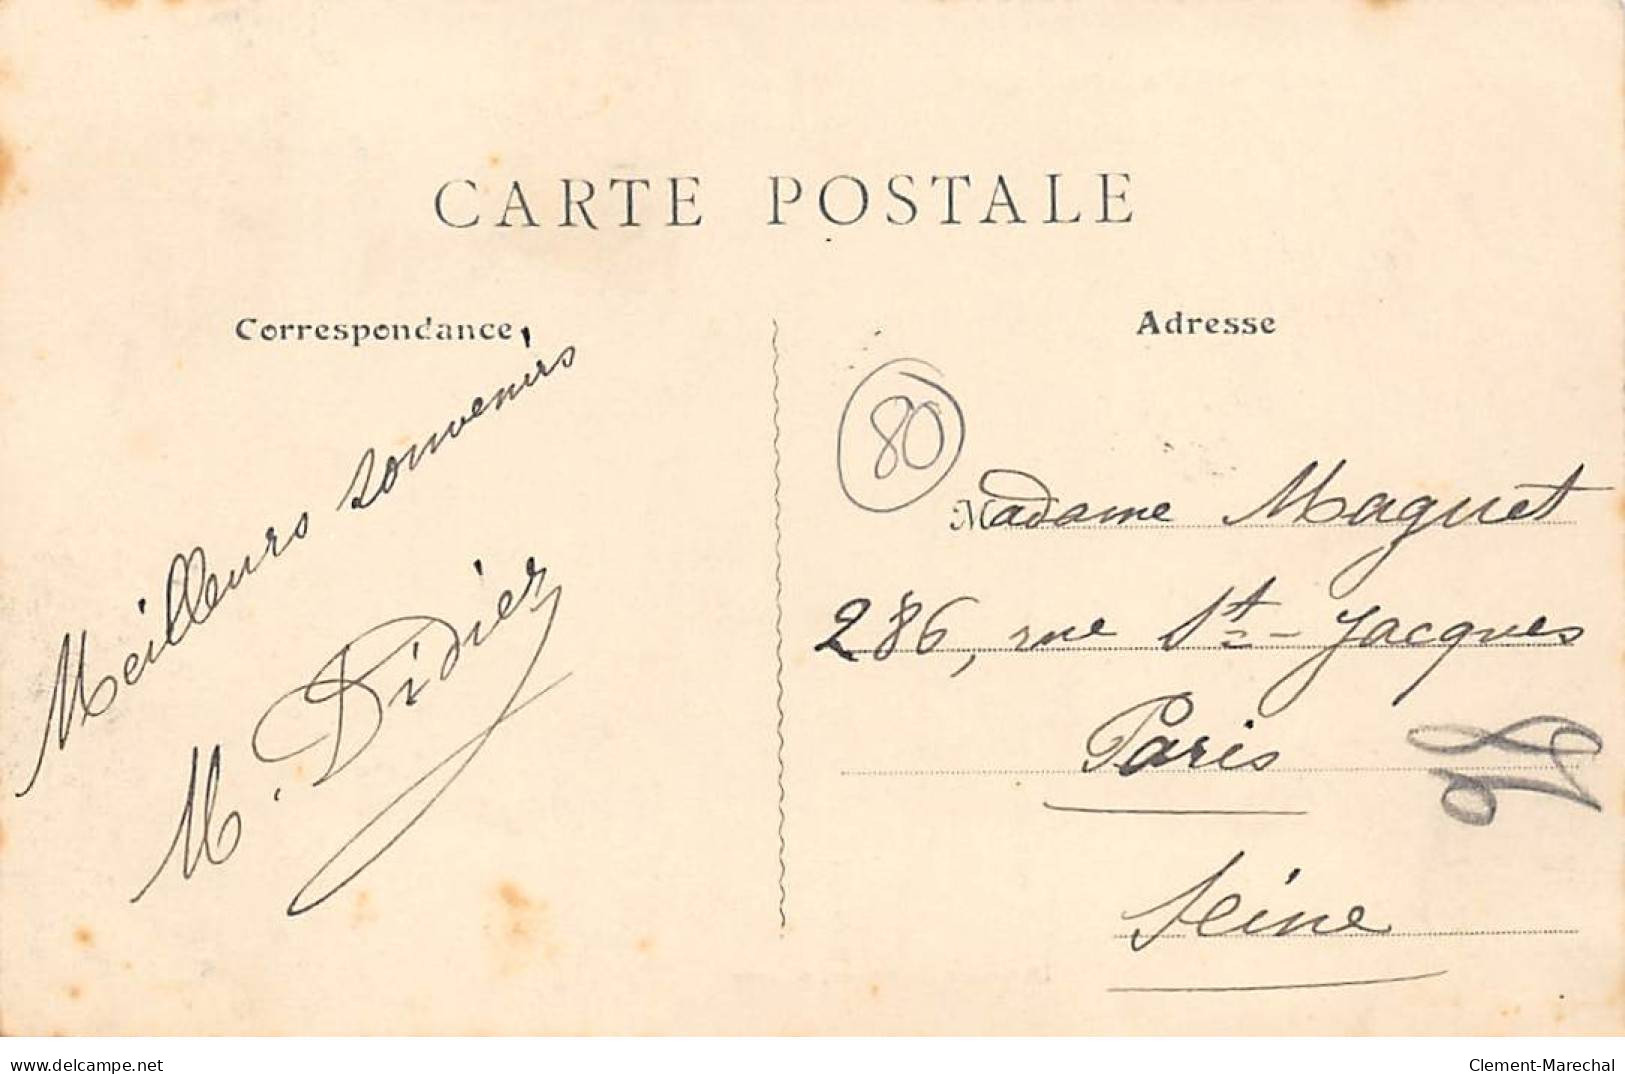 CARTE POSTALE
Correspondance
Meilleurs souvenirs
M. Didier
Adresse
80
Madame Maguet
286, rue St-Jacques
Paris
Seine
www.delcampe.net
Clement-Marechal